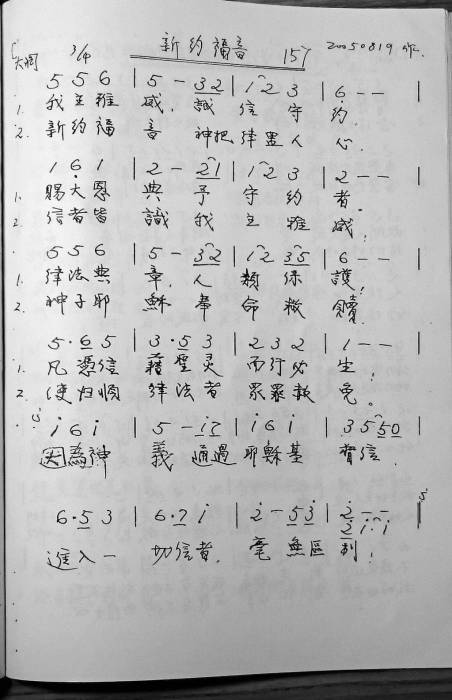 C大調 3/4 新約福音 157 20050819 作.
5 5 6 | 5 - 32 | 1 2 3 | 6 - - |
1. 我主雅 威, 誠 信 守 約.
2. 新約福 音 神把 律置人 心.
1 6 1 | 2 - 21 | 1 2 3 | 2 - - |
1. 賜大恩 典 予 守 約 者.
2. 信者皆 識 我 主 雅 威.
5 5 6 | 5 - 32 | 12 35 | 6 - - |
1. 律法典 章, 人 類 保 護;
2. 神子耶 穌 奉 命 救 贖.
5 · 6 5 | 3 · 5 3 | 2 3 2 | 1 - - |
1. 凡憑信 藉聖灵 而行必 生;
2. 使归順 律法者 眾罪赦 免。
i 6 i | 5 - i2 | i 6 i | 3 5 50 |
因為神 義 通過 耶穌基 督信
6 · 5 3 | 6 · 7 i | 2 - 53 | 2 - - ‖
2 i · i
進入一 切信者, 毫 無區別;